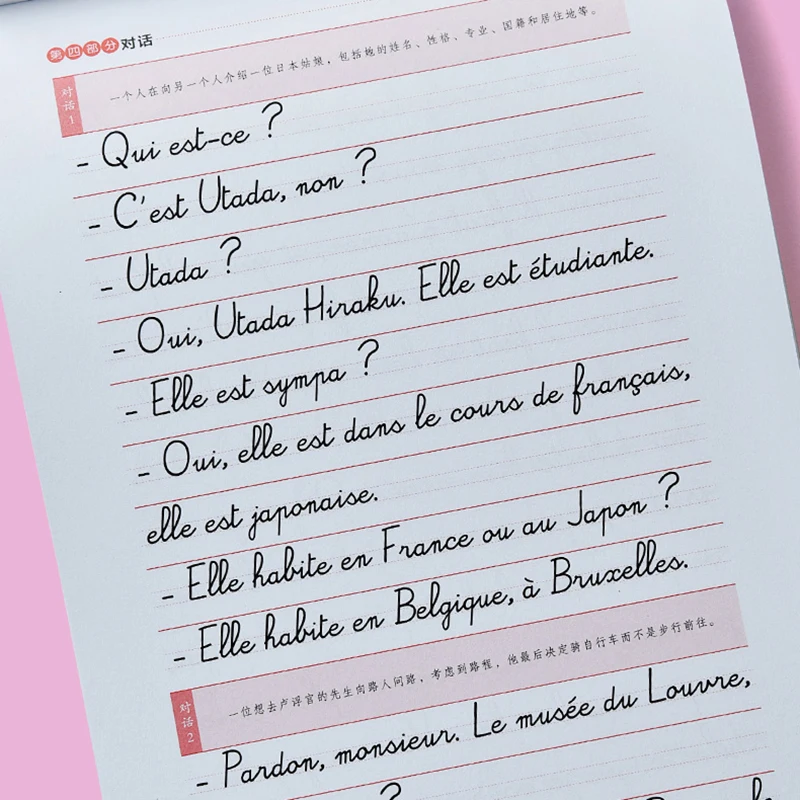 第四部分对话
对话1
一个人在向另一个人介绍一位日本姑娘，包括她的姓名、性格、专业、国籍和居住地等。
- Qui est-ce ?
- C'est Utada, non ?
- Utada ?
- Oui, Utada Hiraku. Elle est étudiante.
- Elle est sympa ?
- Oui, elle est dans le cours de français,
elle est japonaise.
- Elle habite en France ou au Japon ?
- Elle habite en Belgique, à Bruxelles.
对话2
一位想去卢浮宫的先生向路人问路，考虑到路程，他最后决定骑自行车而不是步行前往。
- Pardon, monsieur. Le musée du Louvre,
?